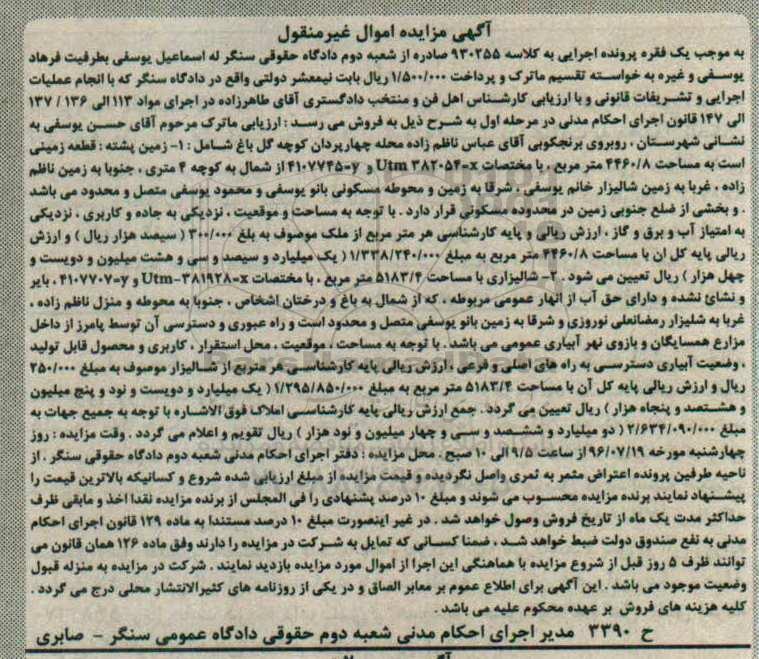 آگهی مزایده اموال غیرمنقول
به موجب یک فقره پرونده اجرایی به کلاسه ۹۳۰۲۵۵ صادره از شعبه دوم دادگاه حقوقی سنگر له اسماعیل یوسفی بطرفیت فرهاد
یوسفی و غیره به خواسته تقسیم ماترک و پرداخت ۱/۵۰۰/۰۰۰ ریال بابت نیمعشر دولتی واقع در دادگاه سنگر که با انجام عملیات
اجرایی و تشریفات قانونی و با ارزیابی کارشناس اهل فن و منتخب دادگستری آقای طاهرزاده در اجرای مواد ۱۱۳ الی ۱۳۶ / ۱۳۷
الی ۱۴۷ قانون اجرای احکام مدنی در مرحله اول به شرح ذیل به فروش می رسد : ارزیابی ماترک مرحوم آقای حسن یوسفی به
نشانی شهرستان ، روبروی برنجکوبی آقای عباس ناظم زاده محله چهارپردان کوچه گل باغ شامل : ۱- زمین پشته : قطعه زمینی
است به مساحت ۴۴۶۰/۸ متر مربع ، با مختصات Utm ۳۸۲۰۵۴-x و ۴۱۰۷۷۴۵-y از شمال به کوچه ۴ متری ، جنوبا به زمین ناظم
زاده ، غربا به زمین شالیزار خانم یوسفی ، شرقا به زمین و محوطه مسکونی بانو یوسفی و محمود یوسفی متصل و محدود می باشد
. و بخشی از ضلع جنوبی زمین در محدوده مسکونی قرار دارد . با توجه به مساحت و موقعیت ، نزدیکی به جاده و کاربری ، نزدیکی
به امتیاز آب و برق و گاز ، ارزش ریالی و پایه کارشناسی هر متر مربع از ملک موصوف به بلغ ۳۰۰/۰۰۰ ( سیصد هزار ریال ) و ارزش
ریالی پایه کل ان با مساحت ۴۴۶۰/۸ متر مربع به مبلغ ۱/۳۳۸/۲۴۰/۰۰۰ ( یک میلیارد و سیصد و سی و هشت میلیون و دویست و
چهل هزار ) ریال تعیین می شود . ۲- شالیزاری با مساحت ۵۱۸۳/۴ متر مربع ، با مختصات Utm-۳۸۱۹۲۸-x و ۴۱۰۷۷۰۷-y ، بایر
و نشائ نشده و دارای حق آب از انهار عمومی مربوطه ، که از شمال به باغ و درختان اشخاص ، جنوبا به محوطه و منزل ناظم زاده ،
غربا به شلیزار رمضانعلی نوروزی و شرقا به زمین بانو یوسفی متصل و محدود است و راه عبوری و دسترسی آن توسط پامرز از داخل
مزارع همسایگان و بازوی نهر آبیاری عمومی می باشد . با توجه به مساحت ، موقعیت ، محل استقرار ، کاربری و محصول قابل تولید
، وضعیت آبیاری دسترسی به راه های اصلی و فرعی ، ارزش ریالی پایه کارشناسی هر متربع از شالیزار موصوف به مبلغ ۲۵۰/۰۰۰
ریال و ارزش ریالی پایه کل آن با مساحت ۵۱۸۳/۴ متر مربع به مبلغ ۱/۲۹۵/۸۵۰/۰۰۰ ( یک میلیارد و دویست و نود و پنج میلیون
و هشتصد و پنجاه هزار ) ریال تعیین می گردد . جمع ارزش ریالی پایه کارشناسی املاک فوق الاشاره با توجه به جمیع جهات به
مبلغ ۲/۶۳۴/۰۹۰/۰۰۰ ( دو میلیارد و ششصد و سی و چهار میلیون و نود هزار ) ریال تقویم و اعلام می گردد . وقت مزایده : روز
چهارشنبه مورخه ۹۶/۰۷/۱۹ از ساعت ۹/۵ الی ۱۰ صبح . محل مزایده : دفتر اجرای احکام مدنی شعبه دوم دادگاه حقوقی سنگر . از
ناحیه طرفین پرونده اعتراض مثمر به ثمری واصل نگردیده و قیمت مزایده از مبلغ ارزیابی شده شروع و کسانیکه بالاترین قیمت را
پیشنهاد نمایند برنده مزایده محسوب می شوند و مبلغ ۱۰ درصد پشنهادی را فی المجلس از برنده مزایده نقدا اخذ و مابقی ظرف
حداکثر مدت یک ماه از تاریخ فروش وصول خواهد شد . در غیر اینصورت مبلغ ۱۰ درصد مستندا به ماده ۱۲۹ قانون اجرای احکام
مدنی به نفع صندوق دولت ضبط خواهد شد ، ضمنا کسانی که تمایل به شرکت در مزایده را دارند وفق ماده ۱۲۶ همان قانون می
توانند ظرف ۵ روز قبل از شروع مزایده با هماهنگی این اجرا از اموال مورد مزایده بازدید نمایند . شرکت در مزایده به منزله قبول
وضعیت موجود می باشد . این آگهی برای اطلاع عموم بر معابر الصاق و در یکی از روزنامه های کثیرالانتشار محلی درج می گردد .
کلیه هزینه های فروش بر عهده محکوم علیه می باشد .
ح ۳۳۹۰ مدیر اجرای احکام مدنی شعبه دوم حقوقی دادگاه عمومی سنگر - صابری